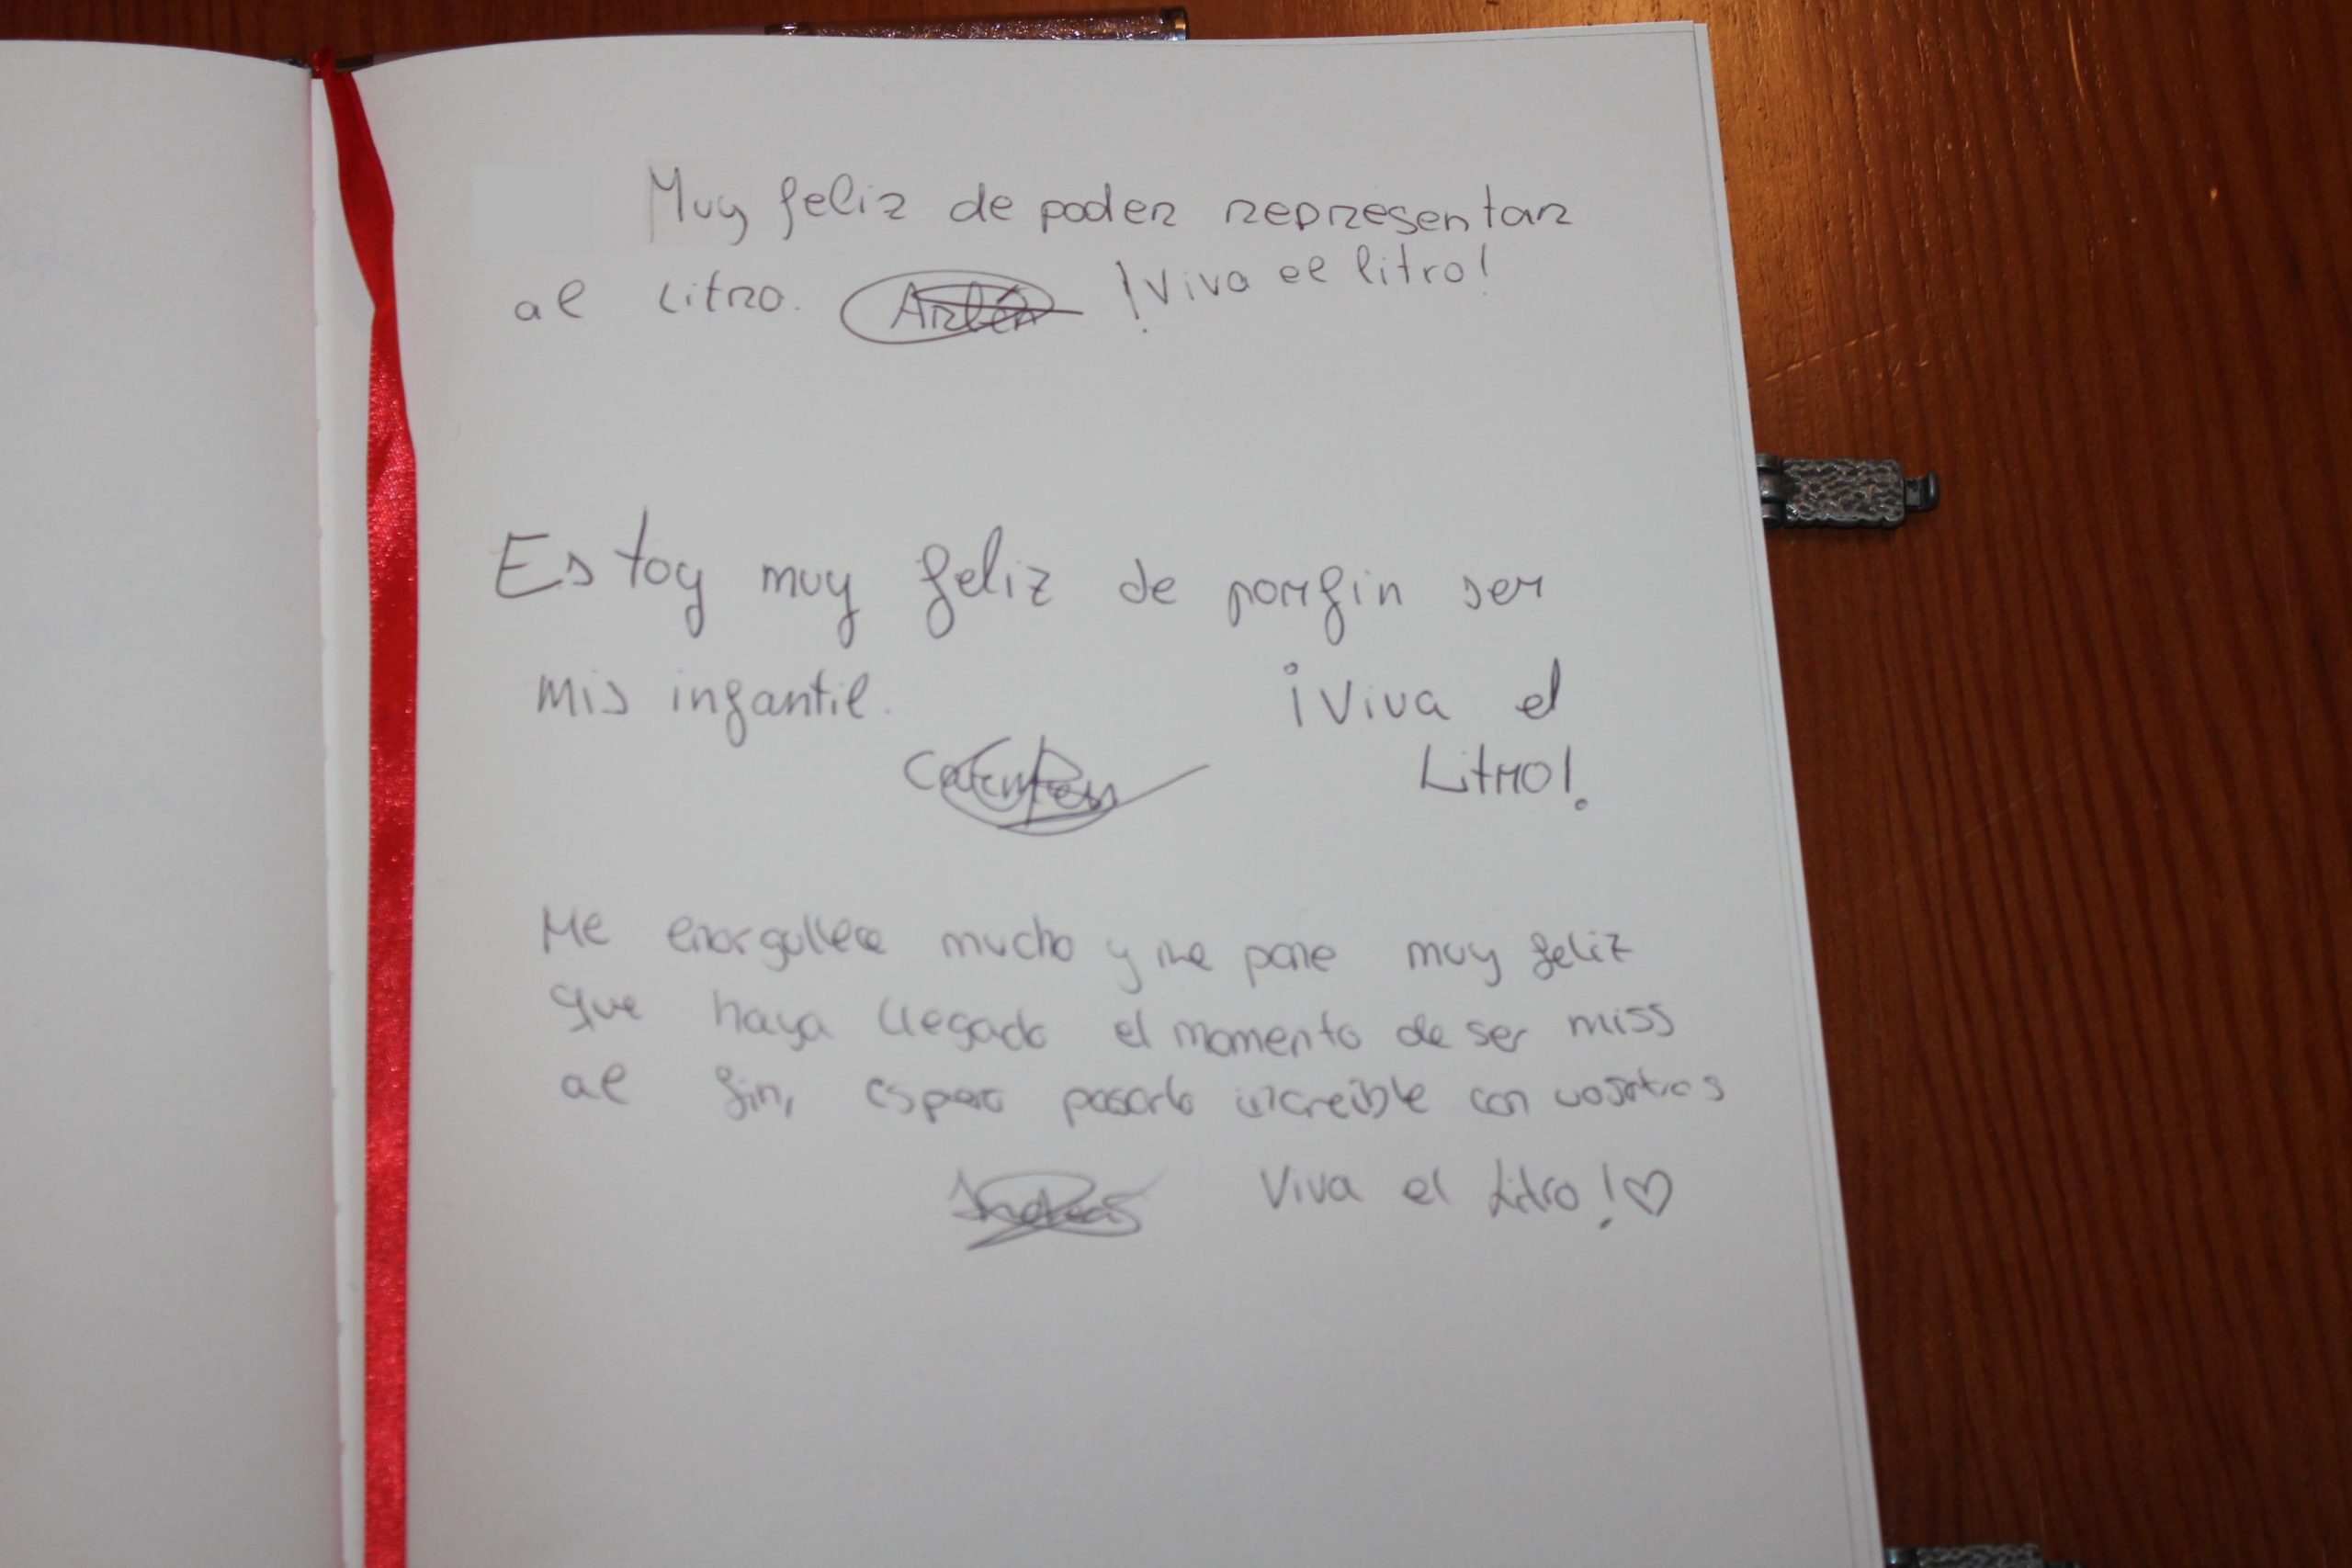 Muy feliz de poder representar
al Litro. ¡Viva el litro!
Estoy muy feliz de porfin ser
mis infantil. ¡Viva el
Litro!
Me enorgullece mucho y me pone muy feliz
que haya llegado el momento de ser miss
al fin, espero pasarlo increíble con vosotros
Viva el Litro! ♡